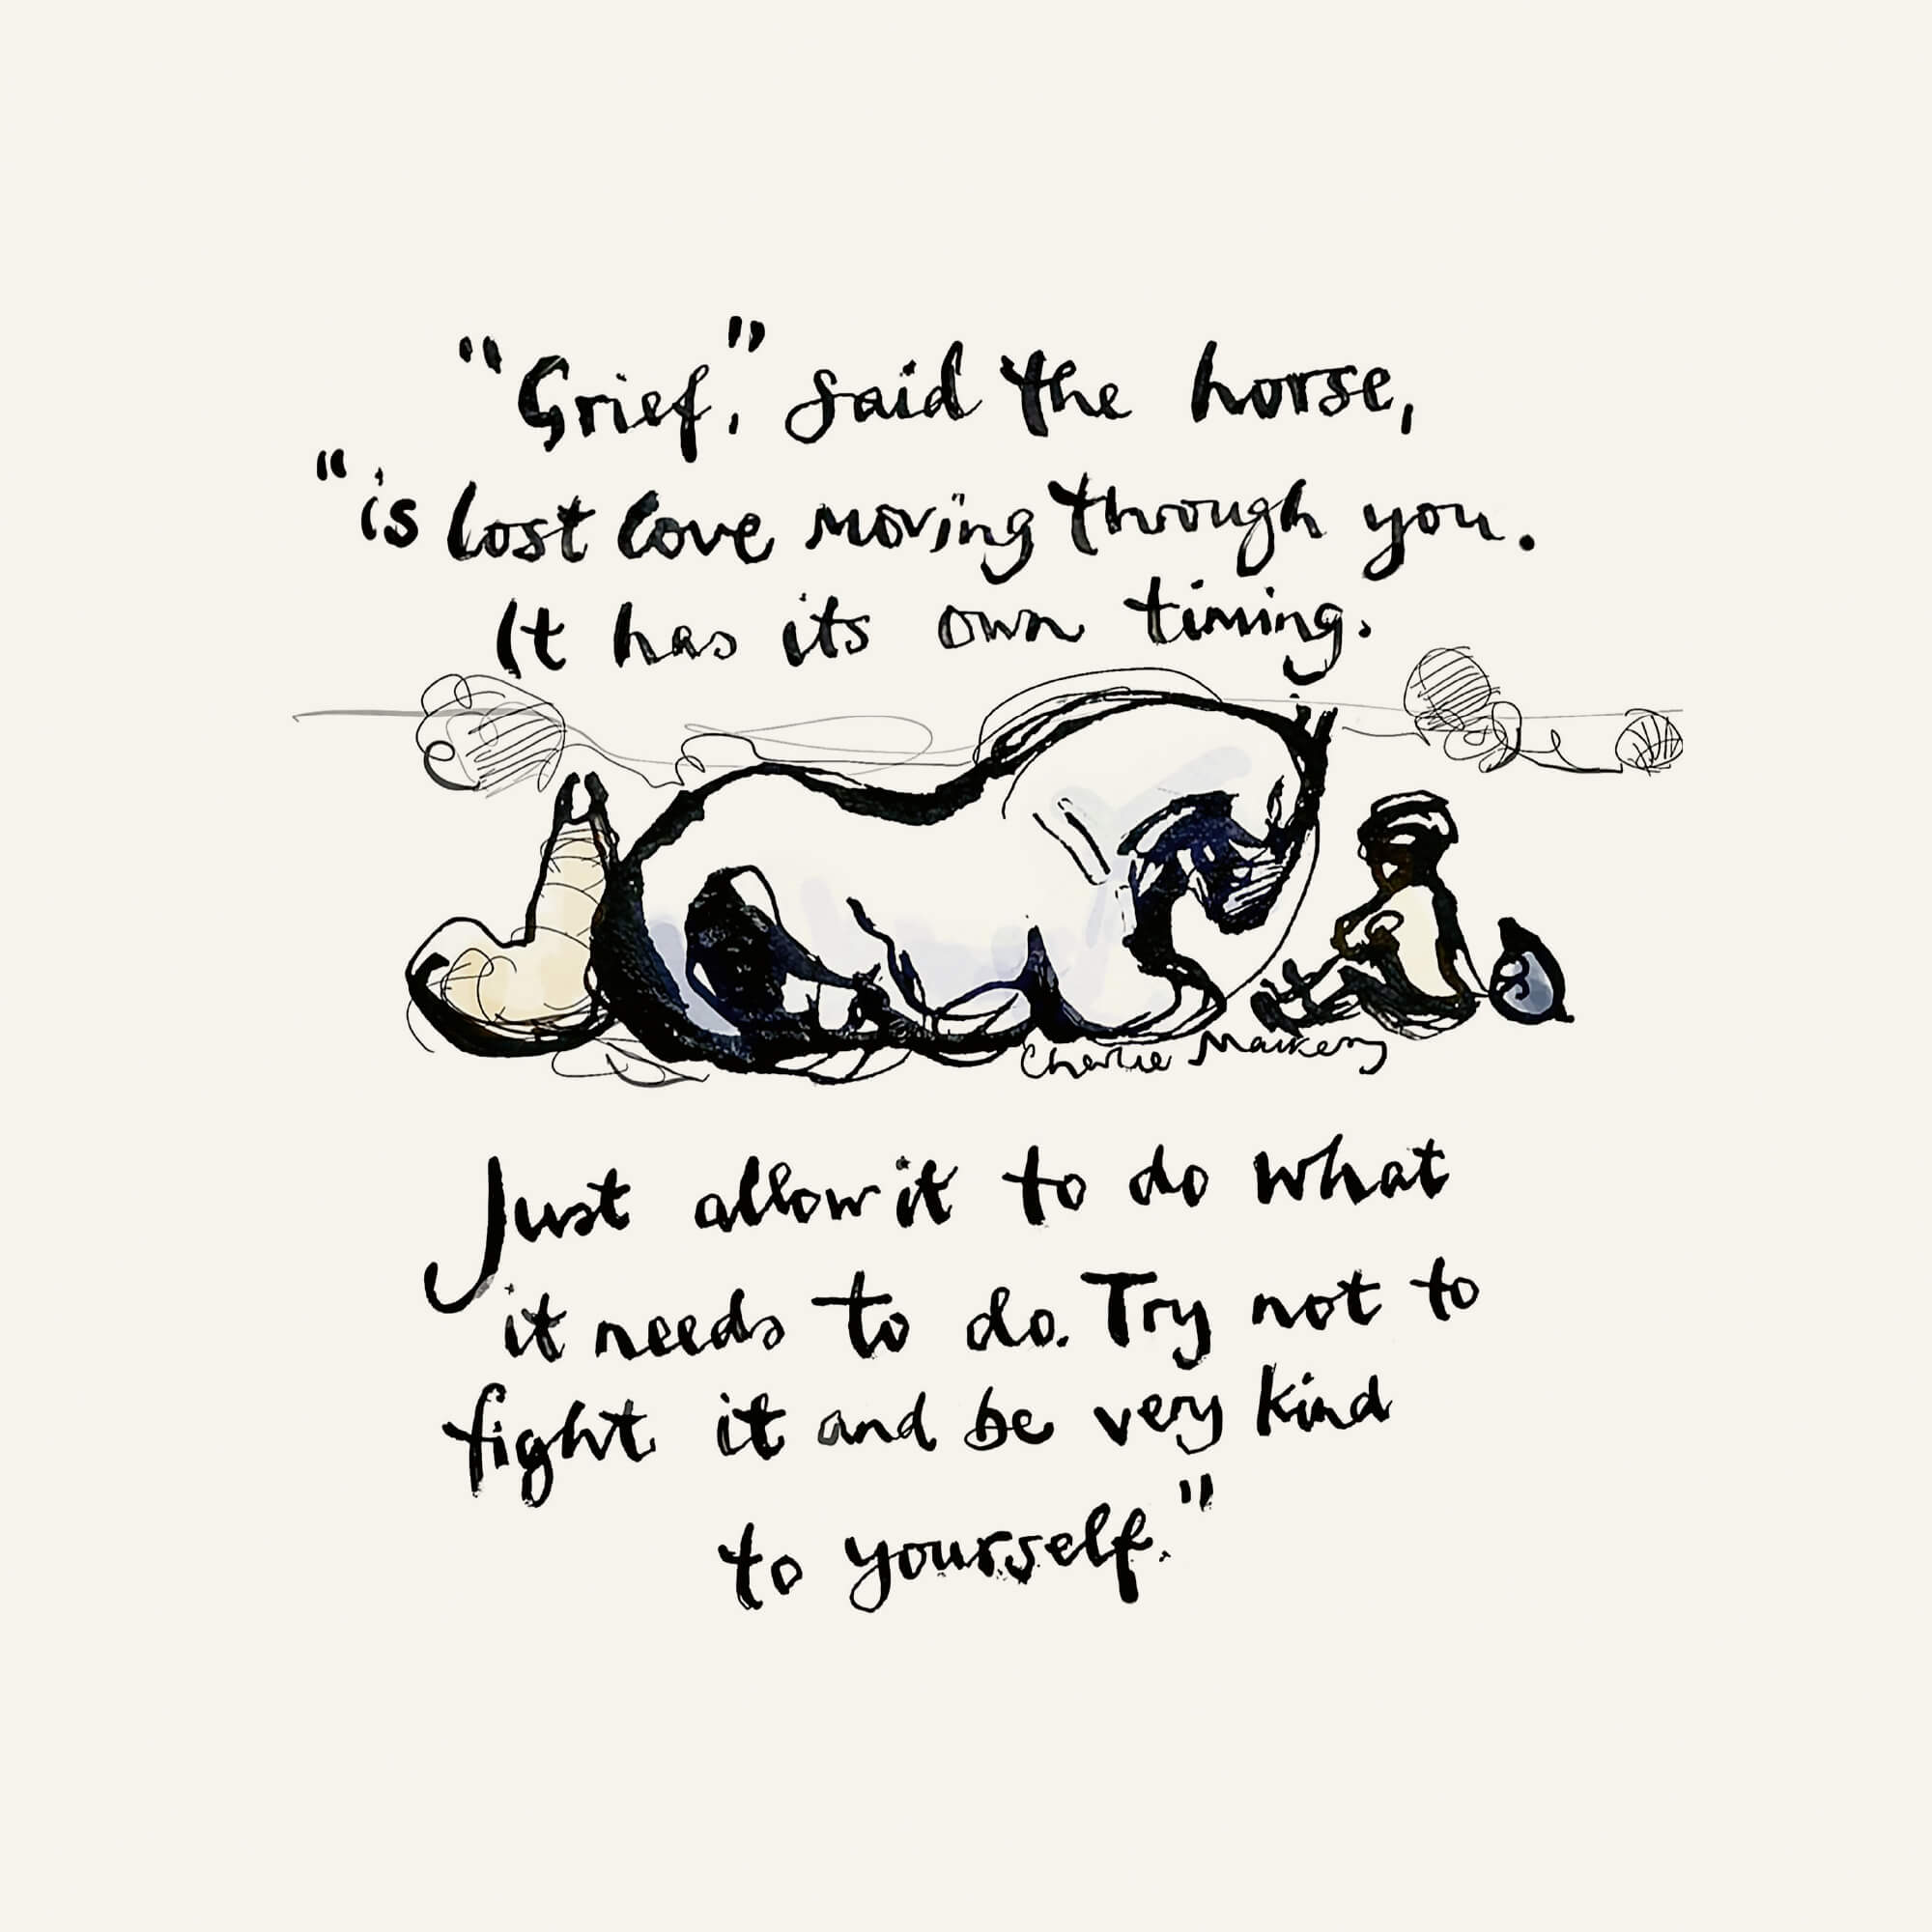 "Grief," said the horse,
"is lost love moving through you.
It has its own timing.
Charlie Mackesy
Just allow it to do what
it needs to do. Try not to
fight it and be very kind
to yourself."